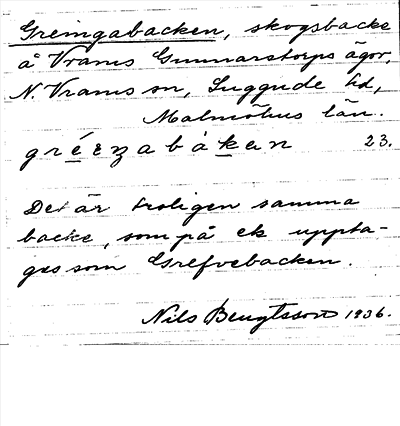 Greingabacken, skogsbacke
å Vrams Gunnarstorps ägor,
N. Vrams sn, Luggude hd,
Malmöhus län.
23.
Det är troligen samma
backe, som på ek uppta-
ges som Grefvebacken.
Nils Bengtsson 1936.